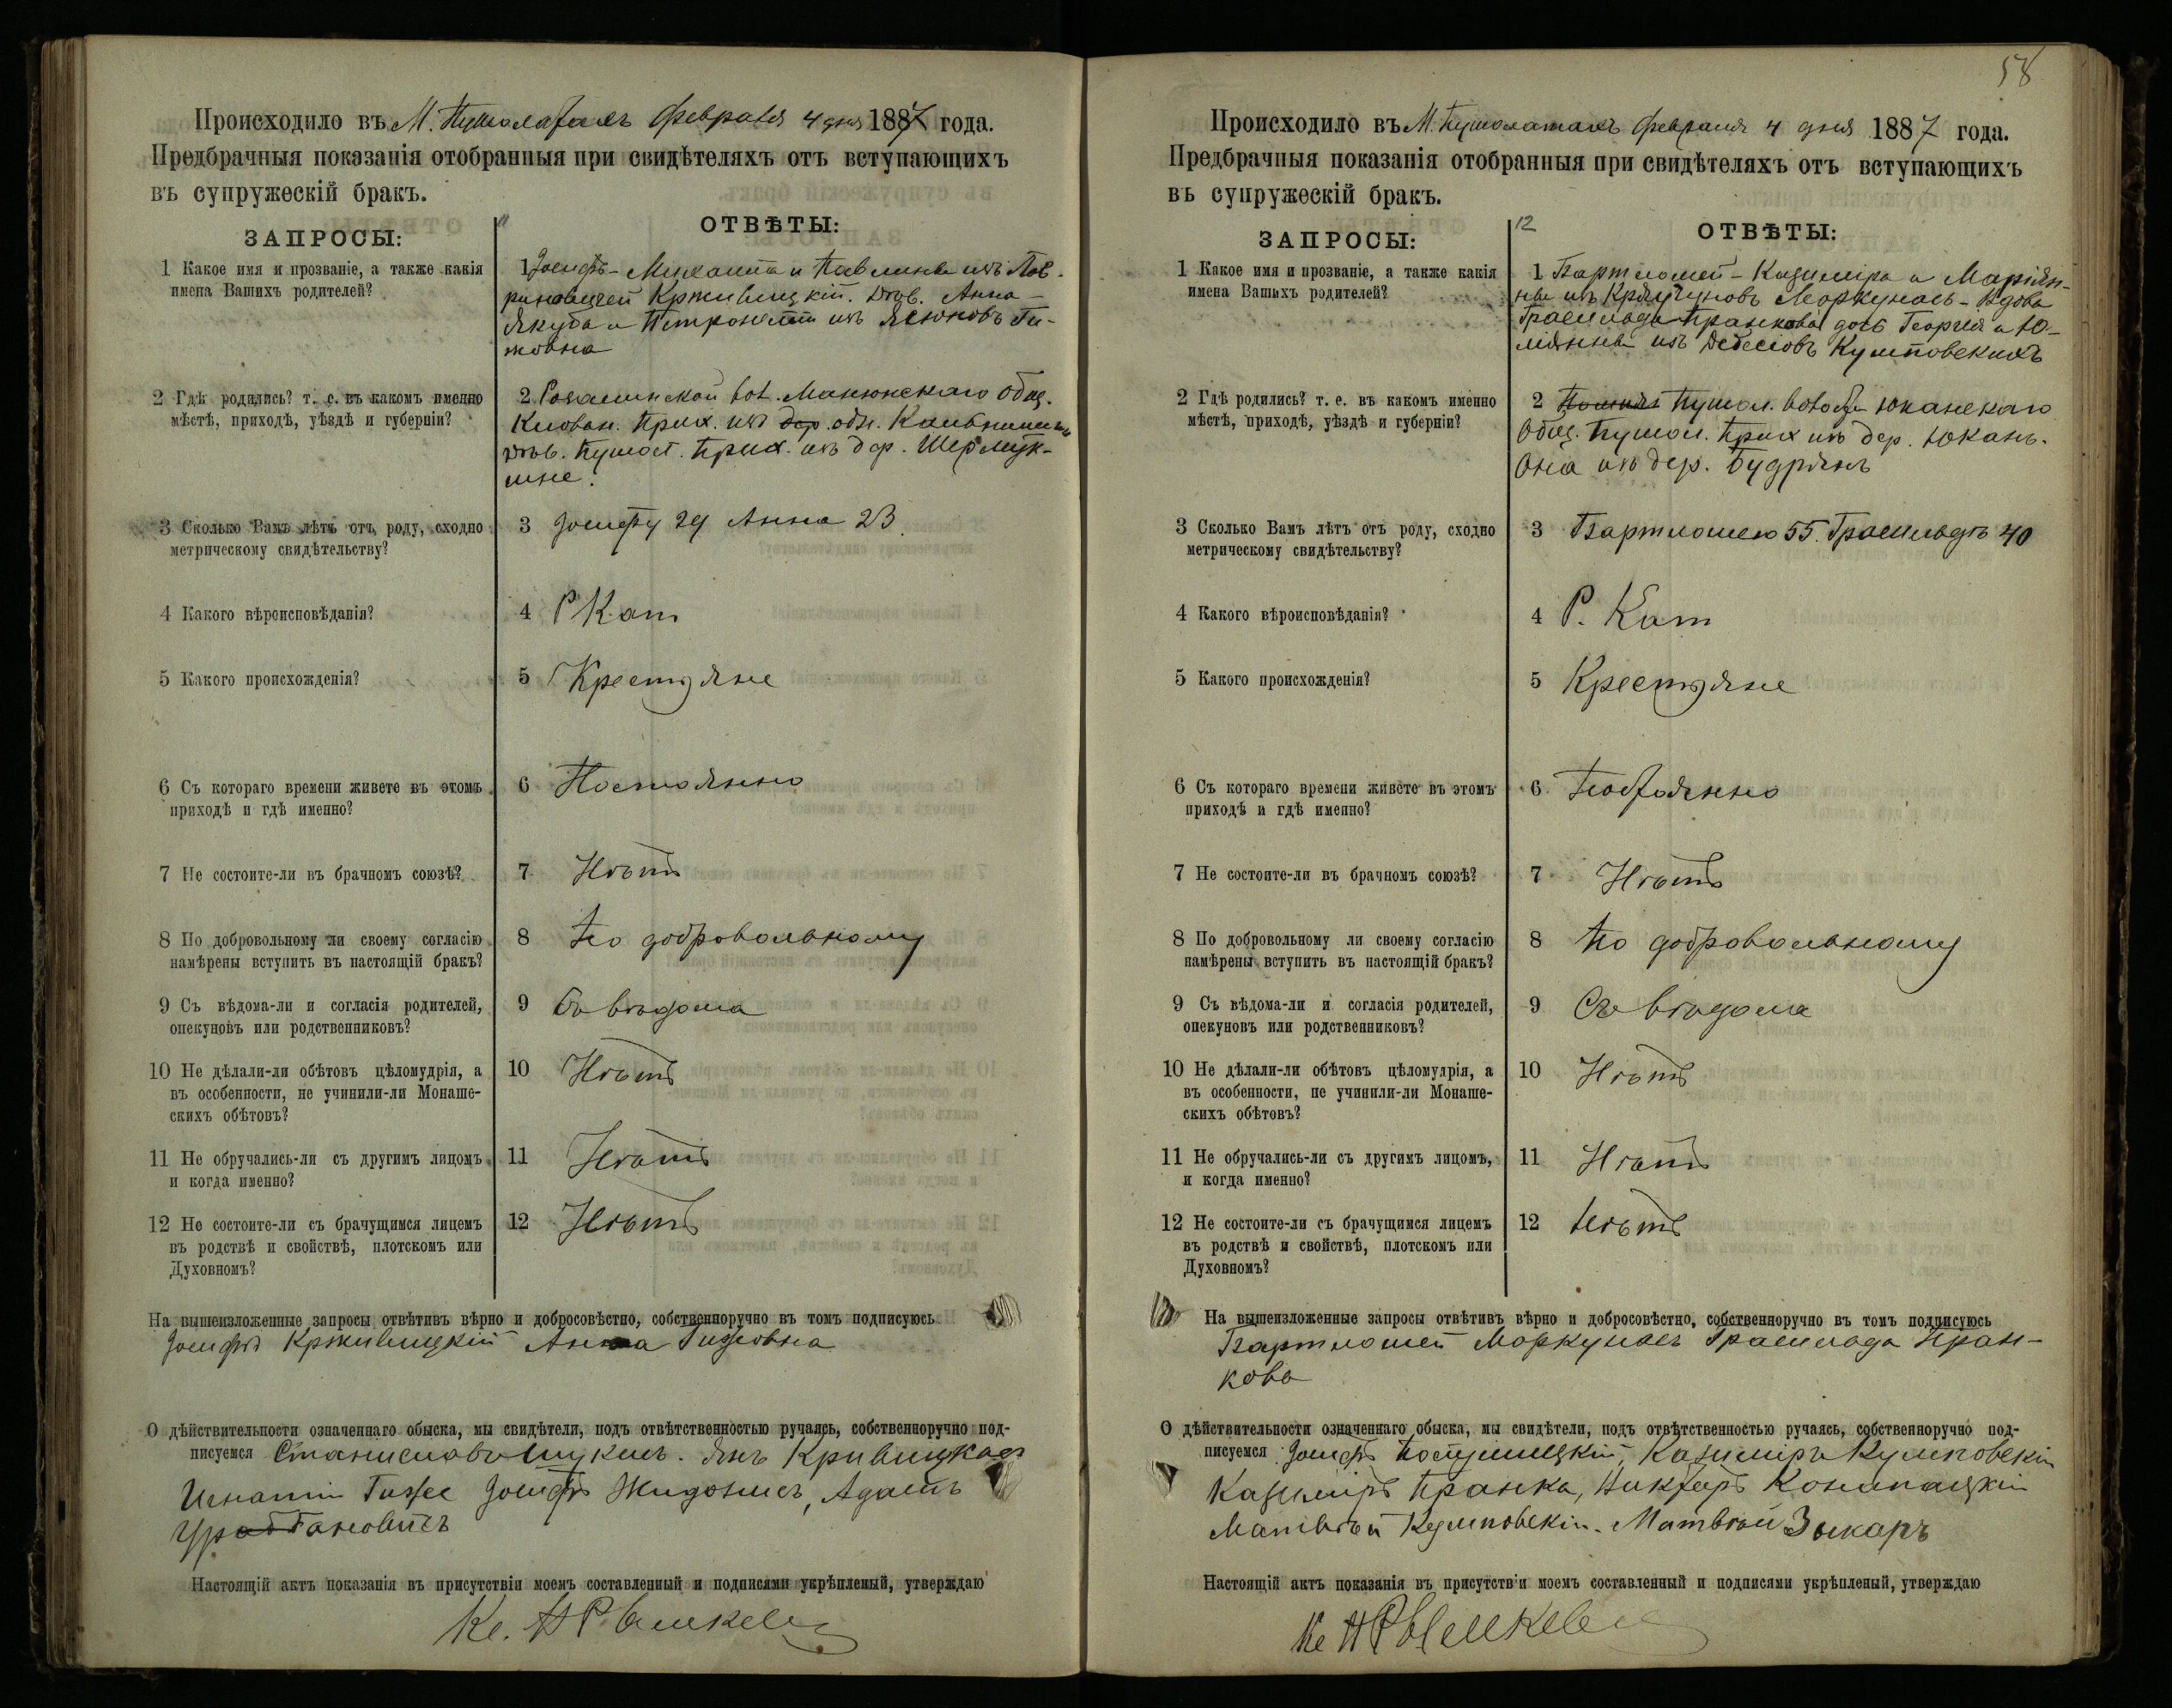 Происходило въ М. Пушолатахъ Февраля 4 дня 1887 года.
Предбрачныя показанія отобранныя при свидѣтеляхъ отъ вступающихъ
въ супружескій бракъ.
ЗАПРОСЫ:
11
ОТВѢТЫ:
1 Какое имя и прозваніе, а также какія
имена Вашихъ родителей?
1 Іосифъ - Михаила и Павлины изъ
Крживицкій. Дѣв. Анна -
Якуба и Петронели изъ
2 Гдѣ родились? т. е. въ какомъ именно
мѣстѣ, приходѣ, уѣздѣ и губерніи?
2 вол. Манюнскаго Общ.
Прих. изъ дер. обл.
Дѣв. Пушол. Прих. изъ дер.
3 Сколько Вамъ лѣтъ отъ роду, сходно
метрическому свидѣтельству?
3 Іосифу 29 Анна 23
4 Какого вѣроисповѣданія?
4 Р Кат
5 Какого происхожденія?
5 Крестьяне
6 Съ котораго времени живете въ этомъ
приходѣ и гдѣ именно?
6 Постоянно
7 Не состоите-ли въ брачномъ союзѣ?
7 Нѣтъ
8 По добровольному ли своему согласію
намѣрены вступить въ настоящій бракъ?
8 По добровольному
9 Съ вѣдома-ли и согласія родителей,
опекуновъ или родственниковъ?
9 Съ вѣдома
10 Не дѣлали-ли обѣтовъ цѣломудрія, а
въ особенности, не учинили-ли Монаше-
скихъ обѣтовъ?
10 Нѣтъ
11 Не обручались-ли съ другимъ лицомъ
и когда именно?
11 Нѣтъ
12 Не состоите-ли съ брачущимся лицемъ
въ родствѣ и свойствѣ, плотскомъ или
Духовномъ?
12 Нѣтъ
На вышеизложенные запросы отвѣтивъ вѣрно и добросовѣстно, собственноручно въ томъ подписуюсь
Іосифъ Крживицкій Анна
О дѣйствительности означеннаго обыска, мы свидѣтели, подъ отвѣтственностью ручаясь, собственноручно под-
писуемся Станиславъ Янъ
Игнатій Іосифъ Адамъ
Настоящій актъ показанія въ присутствіи моемъ составленный и подписями укрѣпленый, утверждаю
Кс.
58
Происходило въ М. Пушолатахъ Февраля 4 дня 1887 года.
Предбрачныя показанія отобранныя при свидѣтеляхъ отъ вступающихъ
въ супружескій бракъ.
ЗАПРОСЫ:
12
ОТВѢТЫ:
1 Какое имя и прозваніе, а также какія
имена Вашихъ родителей?
1 Бартломей - Казиміра и Маріян-
ны изъ Моркунасъ - Вдова
Грасильда Пранкова дочь Георгія и Ю-
лянны изъ Кулповскихъ
2 Гдѣ родились? т. е. въ какомъ именно
мѣстѣ, приходѣ, уѣздѣ и губерніи?
2 Пушол. волости Юканскаго
Общ. Пушол. Прих изъ дер. Юкань.
Она изъ дер. Будрянъ
3 Сколько Вамъ лѣтъ отъ роду, сходно
метрическому свидѣтельству?
3 Бартломею 55. Грасильдѣ 40
4 Какого вѣроисповѣданія?
4 Р. Кат
5 Какого происхожденія?
5 Крестьяне
6 Съ котораго времени живете въ этомъ
приходѣ и гдѣ именно?
6 Постоянно
7 Не состоите-ли въ брачномъ союзѣ?
7 Нѣтъ
8 По добровольному ли своему согласію
намѣрены вступить въ настоящій бракъ?
8 По добровольному
9 Съ вѣдома-ли и согласія родителей,
опекуновъ или родственниковъ?
9 Съ вѣдома
10 Не дѣлали-ли обѣтовъ цѣломудрія, а
въ особенности, не учинили-ли Монаше-
скихъ обѣтовъ?
10 Нѣтъ
11 Не обручались-ли съ другихъ лицомъ,
и когда именно?
11 Нѣтъ
12 Не состоите-ли съ брачущимся лицемъ
въ родствѣ и свойствѣ, плотскомъ или
Духовномъ?
12 Нѣтъ
На вышеизложенные запросы отвѣтивъ вѣрно и добросовѣстно, собственноручно въ томъ подписуюсь
Бартломей Моркунасъ Грасильда Пран-
кова
О дѣйствительности означеннаго обыска, мы свидѣтели, подъ отвѣтственностью ручаясь, собственноручно под-
писуемся Іосифъ Казиміръ Кулповскій
Казиміръ Пранка, Викторъ
Матвѣй Кулповскій. Матвѣй
Настоящій актъ показанія въ присутствіи моемъ составленный и подписями укрѣпленый, утверждаю
Кс